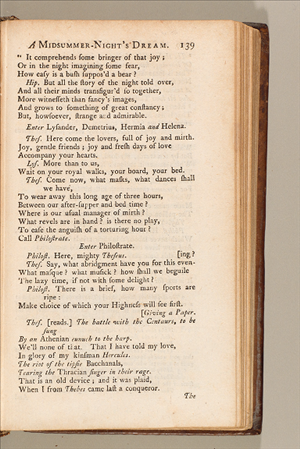 A MIDSUMMER-NIGHT'S DREAM. 139
" It comprehends some bringer of that joy ;
Or in the night imagining some fear,
How easy is a bush suppos'd a bear ?
Hip. But all the story of the night told over,
And all their minds transfigur'd so together,
More witnesseth than fancy's images,
And grows to something of great constancy ;
But, howsoever, strange and admirable.
Enter Lysander, Demetrius, Hermia and Helena.
Thes. Here come the lovers, full of joy and mirth.
Joy, gentle friends ; joy and fresh days of love
Accompany your hearts.
Lys. More than to us,
Wait on your royal walks, your board, your bed.
Thes. Come now, what masks, what dances shall
we have,
To wear away this long age of three hours,
Between our after-supper and bed time ?
Where is our usual manager of mirth ?
What revels are in hand ? is there no play,
To ease the anguish of a torturing hour ?
Call Philostrate.
Enter Philostrate.
Philost. Here, mighty Theseus. [ing ?
Thes. Say, what abridgment have you for this even-
What masque ? what musick ? how shall we beguile
The lazy time, if not with some delight ?
Philost. There is a brief, how many sports are
ripe :
Make choice of which your Highness will see first.
[Giving a Paper.
Thes. [reads.] The battle with the Centaurs, to be
sung
By an Athenian eunuch to the harp.
We'll none of that. That I have told my love,
In glory of my kinsman Hercules.
The riot of the tipsie Bacchanals,
Tearing the Thracian singer in their rage.
That is an old device ; and it was plaid,
When I from Thebes came last a conqueror.
The